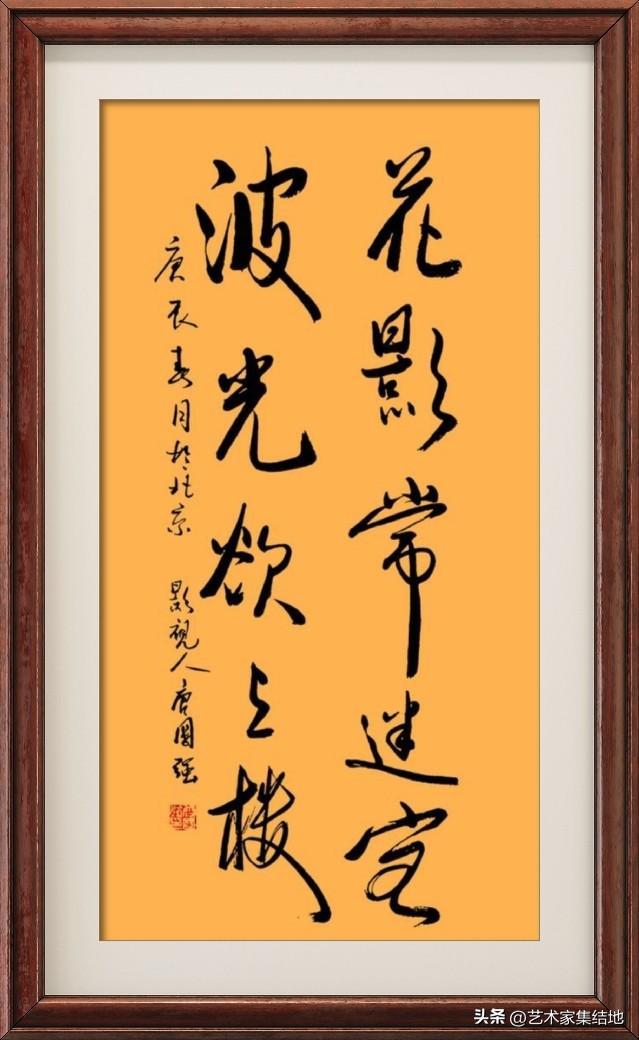 花影常迷客
波光欲上楼
庚辰春月于北京 影视人唐国强
头条 @艺术家集结地